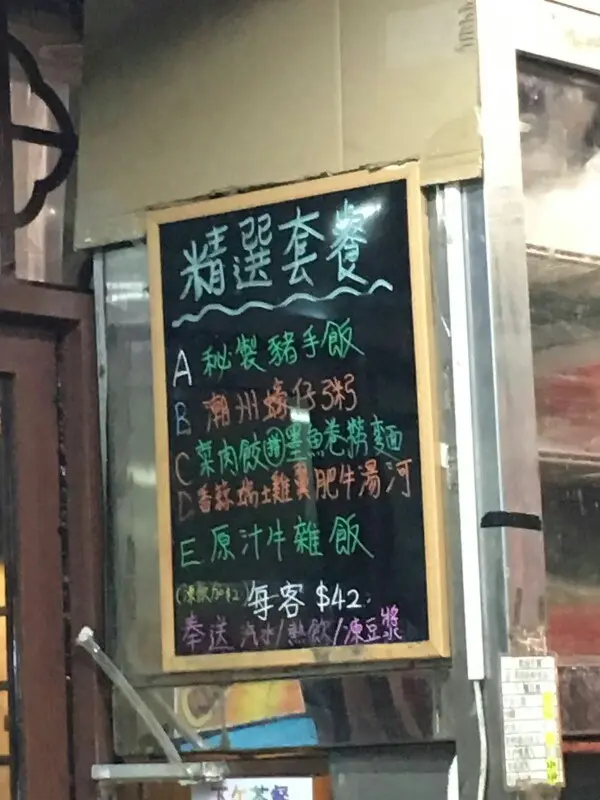 精選套餐
A 秘製豬手飯
B 潮州蠔仔粥
C 菜肉餃拼墨魚卷撈麵
D 香蒜瑞士雞翼肥牛湯河
E 原汁牛雜飯
(凍飲加$2) 每客 $42
奉送 汽水/熱飲/凍豆漿
下午茶餐